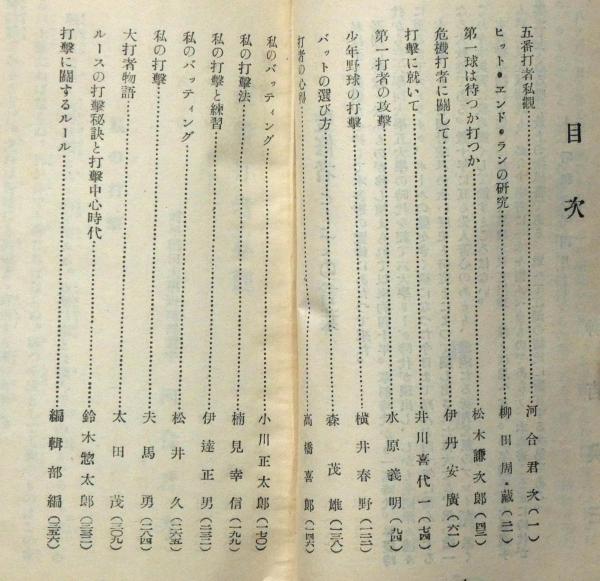 目次
五番打者私觀…………河合君次（一）
ヒット・エンド・ランの研究…………柳田周藏（二一）
第一球は待つか打つか…………松木謙次郎（四三）
危機打者に關して…………伊丹安廣（六一）
打擊に就いて…………井川喜代一（七四）
第一打者の攻擊…………水原義明（九四）
少年野球の打擊…………橫井春野（一二三）
バットの選び方…………森茂雄（一三八）
打者の心得…………高橋喜郎（一四六）
私のバッティング…………小川正太郎（一七〇）
私の打擊法…………楠見幸信（一九九）
私の打擊と練習…………伊達正男（二三二）
私のバッティング…………松井久（二六五）
私の打擊…………夫馬勇（二八四）
大打者物語…………太田茂（三〇九）
ルースの打擊秘訣と打擊中心時代…………鈴木惣太郎（三三二）
打擊に關するルール…………編輯部編（三五六）